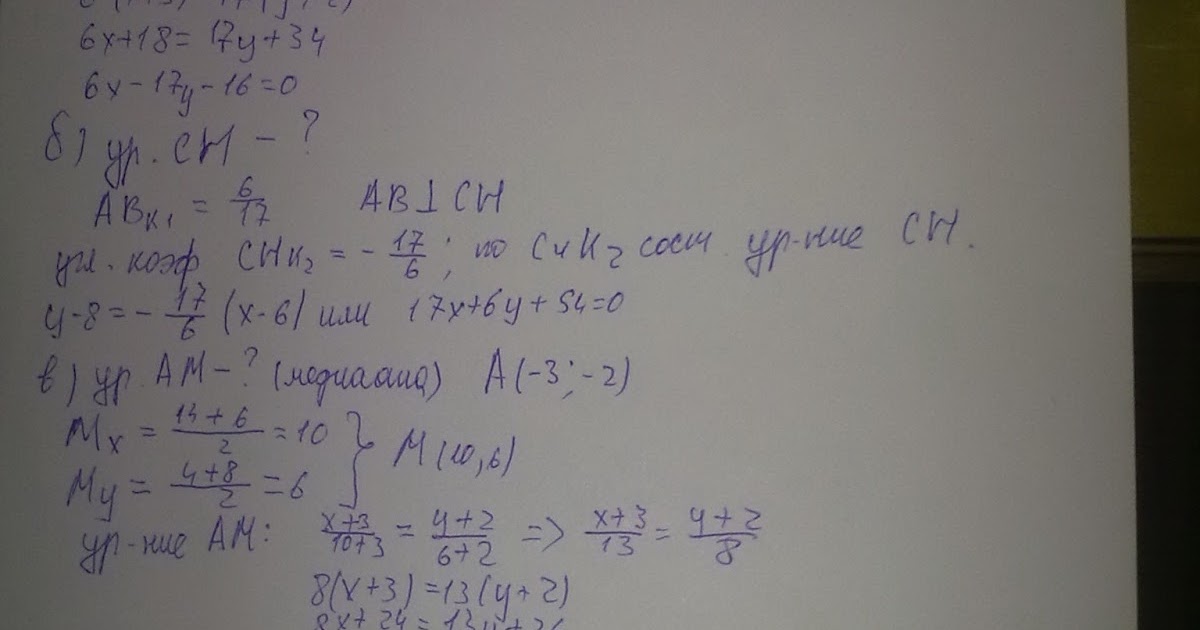 6x+18=17y+34
6x-17y-16=0
б) ур. CH - ?
AB к₁ = 6/17 AB⊥CH
угл. коэф CH к₂ = -17/6; по C и К₂ сост. ур-ние CH.
y-8=-17/6 (x-6) или 17x+6y+54=0
в) ур. AM-? (медиаана) A(-3;-2)
Mx = 14+6/2 =10
My = 4+8/2 =6 } M(10,6)
ур-ние AM: x+3/10+3 = y+2/6+2 => x+3/13 = y+2/8
8(x+3)=13(y+2)
8x+24=13y+26